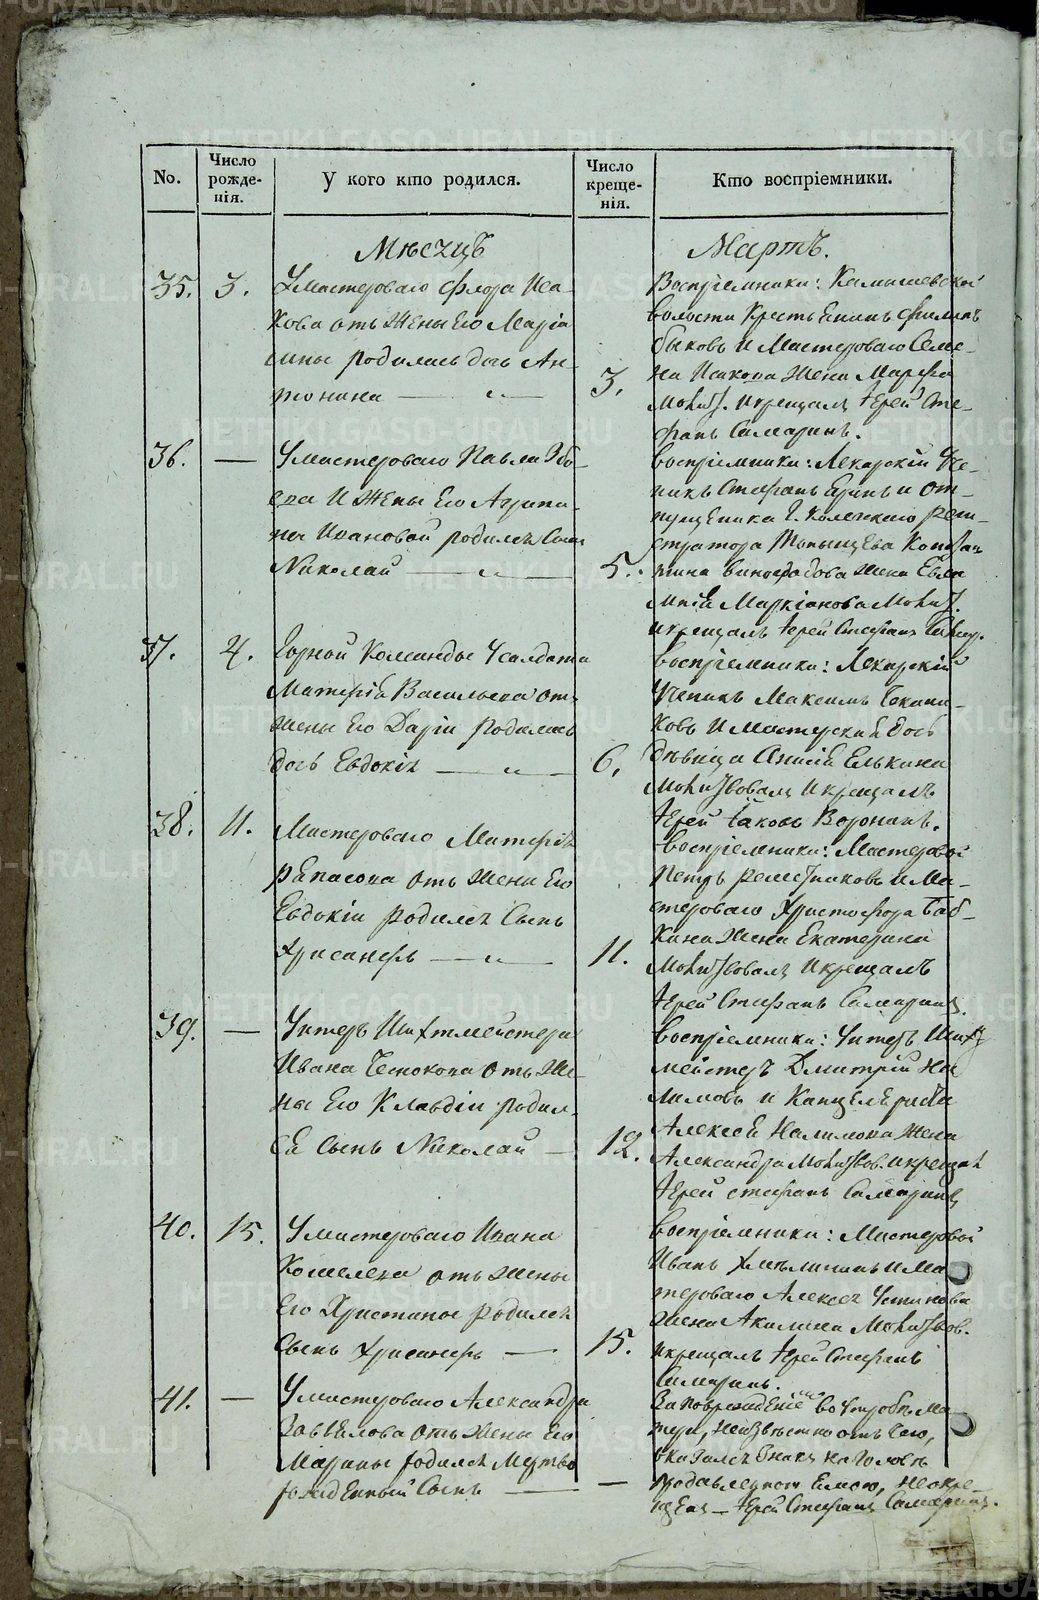 No.
Число рожде-нія.
У кого кто родился.
Число креще-нія.
Кто воспріемники.
Мѣсяцъ
Мартъ.
35. 3.
Умастероваго Флора Иса-
кова отъ жены его Марiа
мны родилась дочь Ан-
тонина
3.
Воспріемники: Камышевской
волости Крестьянинъ Филипъ
Быковъ и Мастероваго Семе-
на Исакова жена Марфа
Молит. икрещалъ Іерей Сте-
фанъ Самаринъ.
36. —
Умастероваго Павла
и жены его Агрипи-
ны Ивановой родился сынъ
Николай
5.
воспріемники: Лекарскій Уче-
никъ Стефанъ и от-
пущеника Г. Колежскаго реги-
стратора Констан
тина Виноградова жена Евла
мпія Маркіанова Молит.
икрещалъ Іерей Стефанъ Самар.
37. 4.
Горной Команды Усалдата
Матфія Васильева отъ
жены его Даріи родилась
дочь Евдокія
6.
воспріемники: Лекарскій
Ученикъ Максимъ
ковъ и мастерская дочь
дѣвица Елькина
Молитвовалъ икрещалъ
Іерей Іаковъ Воронинъ.
38. 11.
Мастероваго Матфія
отъ жены его
Евдокіи родился Сынъ
Хрисанфъ
11.
воспріемники: Мастеровой
Петръ Решетниковъ и Ма-
стероваго Христофора Баб-
кина жена Екатерина
Молитвовалъ икрещалъ
Іерей Стефанъ Самаринъ.
39. —
Унтеръ Шихтмейстера
Ивана Чеснокова отъ же-
ны его Клавдіи родил-
ся сынъ Николай
12.
воспріемники: Унтеръ Шихт
мейстеръ Дмитрій На
лимовъ и Канцеляриста
Алексея Налимова жена
Александра Молитвов. икрещал
Іерей Стефанъ Самаринъ
40. 15.
Умастероваго Ивана
Кошелева отъ жены
его Христины родился
сынъ Хрисанфъ
15.
воспріемники: Мастеровой
Иванъ Хмѣлининъ и Мас
тероваго Алексея Устинова
жена Акилина Молитвов.
икрещалъ Іерей Стефанъ
Самаринъ.
41. —
Умастероваго Александра
Завьялова отъ жены его
Марины родился Мертво
рожденный сынъ
—
За поврежденіемъ во утробѣ ма-
тери, неизвѣстно отъ чего,
оказался знакъ на головѣ
продавленною ямою, неокре-
щенъ — Іерей Стефанъ Самаринъ.
METRIKI.GASO-URAL.RU